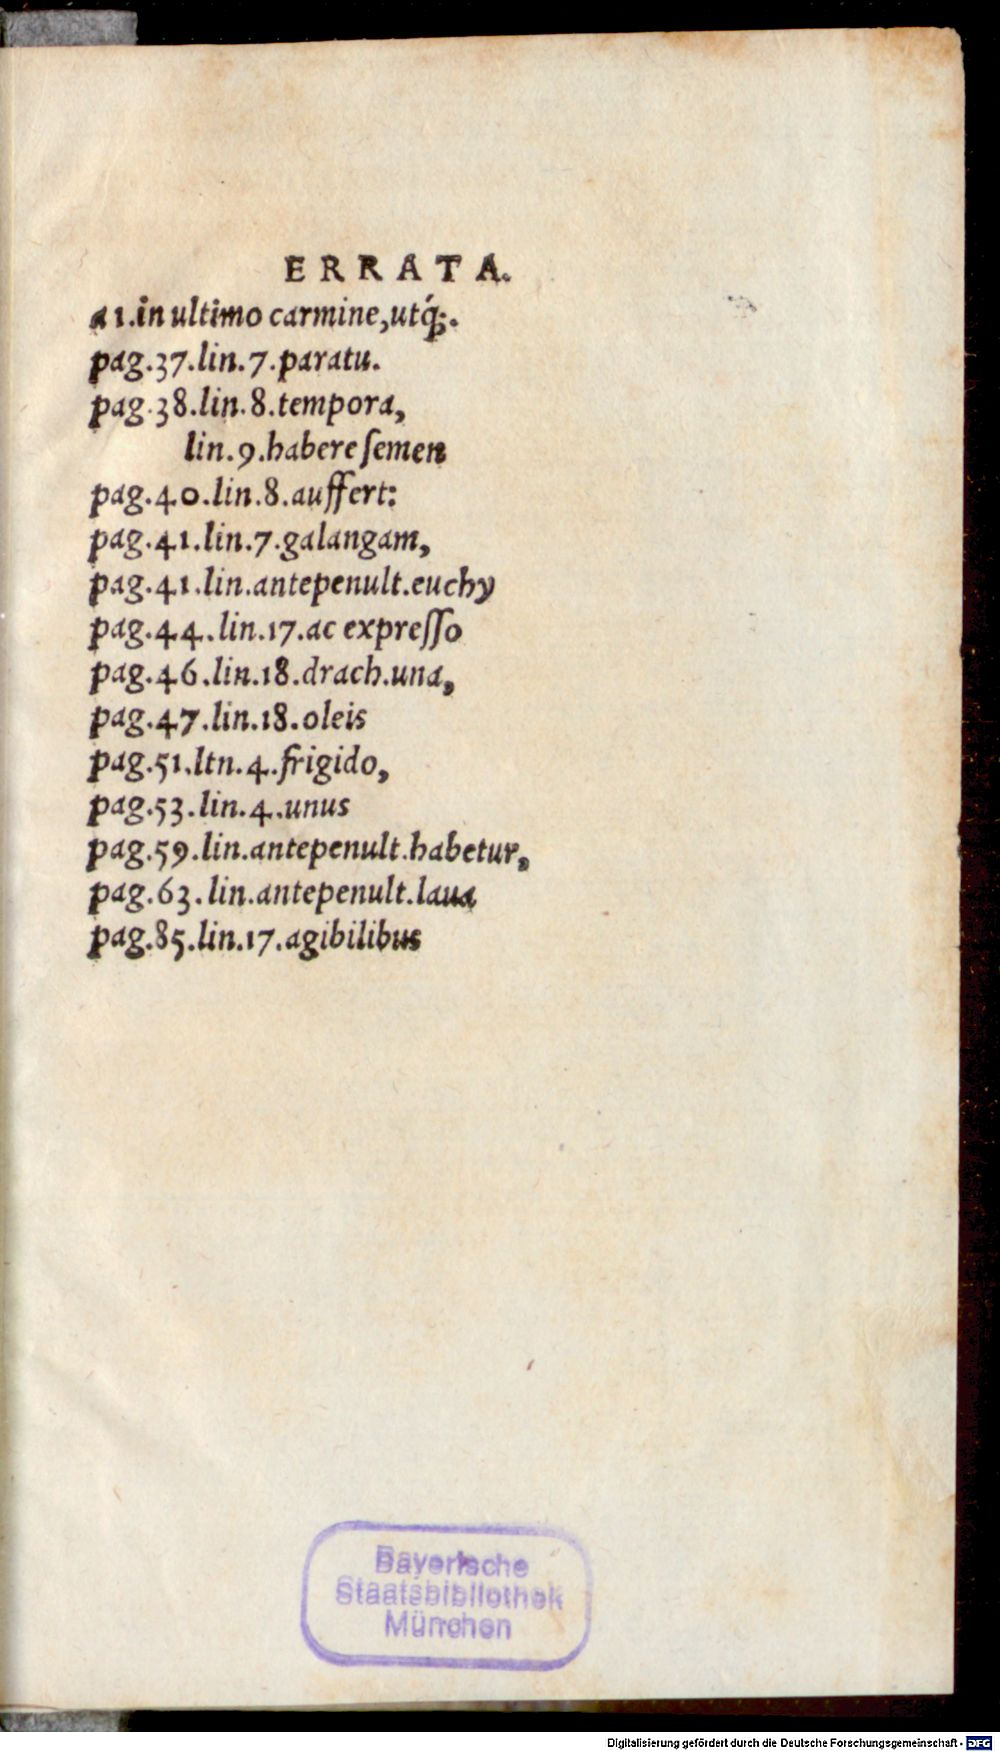 ERRATA.
a1.in ultimo carmine,utq́;.
pag.37.lin.7.paratu.
pag.38.lin.8.tempora,
lin.9.habere ſemen
pag.40.lin.8.auffert:
pag.41.lin.7.galangam,
pag.41.lin.antepenult.euchy
pag.44.lin.17.ac expreſſo
pag.46.lin.18.drach.una,
pag.47.lin.18.oleis
pag.51.ltn.4.frigido,
pag.53.lin.4.unus
pag.59.lin.antepenult.habetur,
pag.63.lin.antepenult.laua
pag.85.lin.17.agibilibus
Bayerische
Staatsbibliothek
München
Digitalisierung gefördert durch die Deutsche Forschungsgemeinschaft - DFG